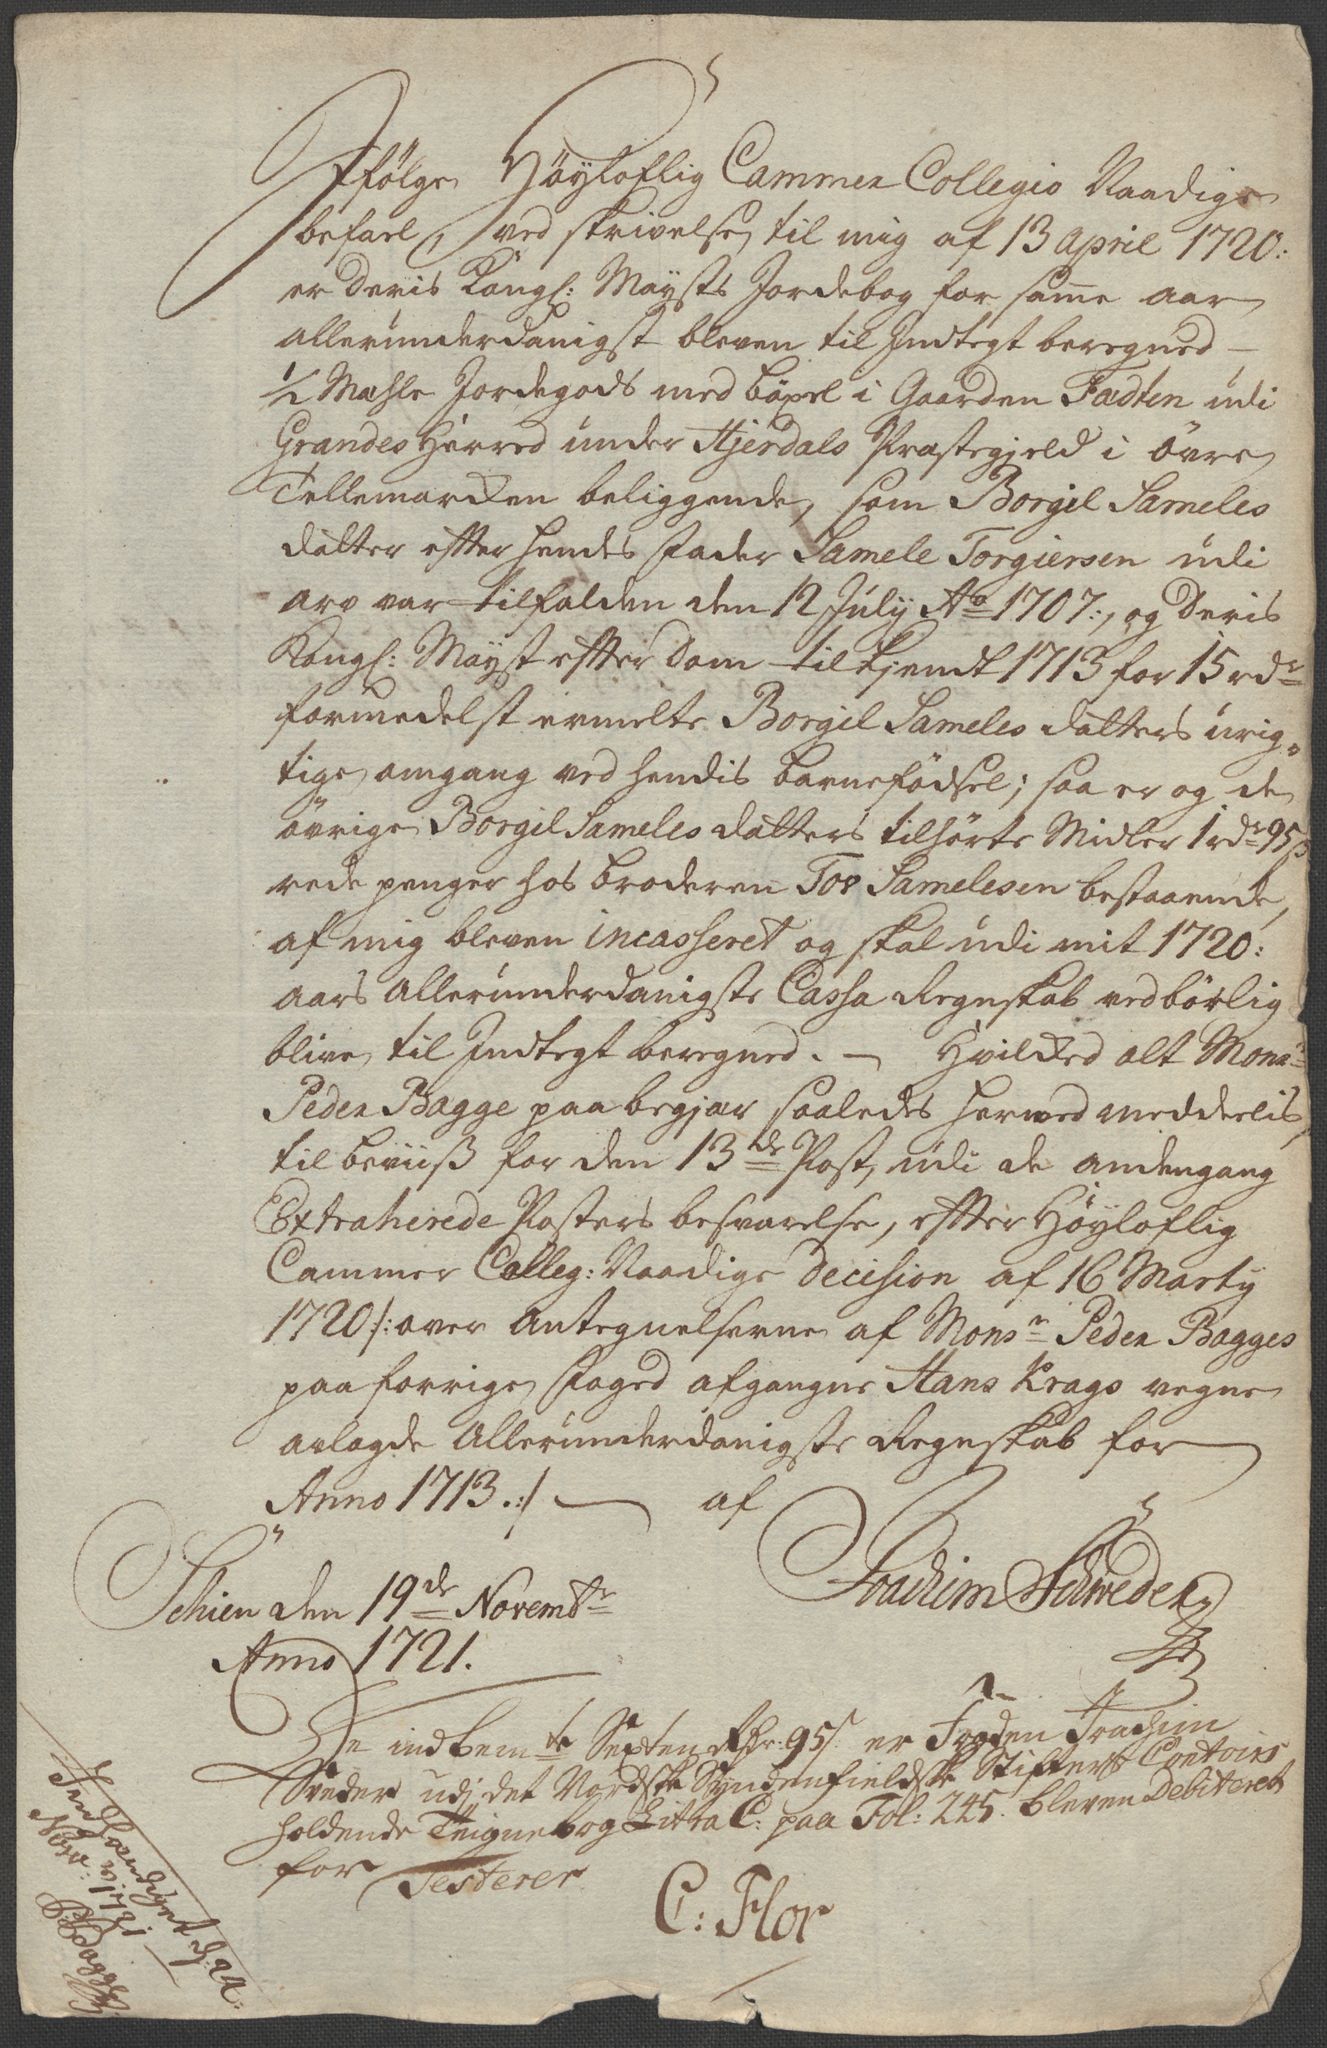 Ifølge Höyloflig Cammer Collegio Naadige
befael, ved skrivelse til mig af 13 April 1720:
er deris Kongl: Maysts Jordebog for samme aar
allerunderdanigst bleven til Indtegt beregned
1/2 Mæhle Jordegods med böxel i Gaarden Fædten udi
Grandes Herred under Hjerdals Præstegjeld i övre
Tellemarcken beliggende, som Borgil Sameles
datter efter hendes Fader Samele Torgiersen udi
arv var tilfalden den 12 July Ao 1707:, og deris
Kongl: Mayst efter dom tilkjendt 1713 for 15 rdr
formedelst ermelte Borgil Sameles datters urig-
tige omgang ved hendis barnefödsel; saa er og de
övrige Borgil Sameles datters tilhörte Midler 1 rdr 95 ß
rede penger hos broderen Tov Samelesen bestaaende,
af mig bleven incasseret og skal udi mit 1720:
aars allerunderdanigste Cassa Regnskab vedbörlig
blive til Indtegt beregned. — Hvilcked alt Monsr
Peder Bagge paa begjær saaledes herved meddeelis,
til beviiß for den 13de Post, udi de andengang
Extraherede Posters besvarelse, efter Höyloflig
Cammer Colleg: Naadige decision af 16 Marty
1720 /: over Antegnelserne af Monsr Peder Bagges
paa forrige Foged afgangne Hans Krags vegne
avlagde Allerunderdanigste Regnskab for
Anno 1713 :/ — af
Joachim Schweder
Schien den 19de Novembr
Anno 1721.
De indbemte Rdr: 95 s er Joachim
Sveder udj det Nordske Syndenfieldske Stifters Contoirs
holdende Teignebog Litra C: paa Fol: 245. bleven Debiteret
for Testerer
C: Flor
Indhændiget d. 24
Novr: 1721
PBagge